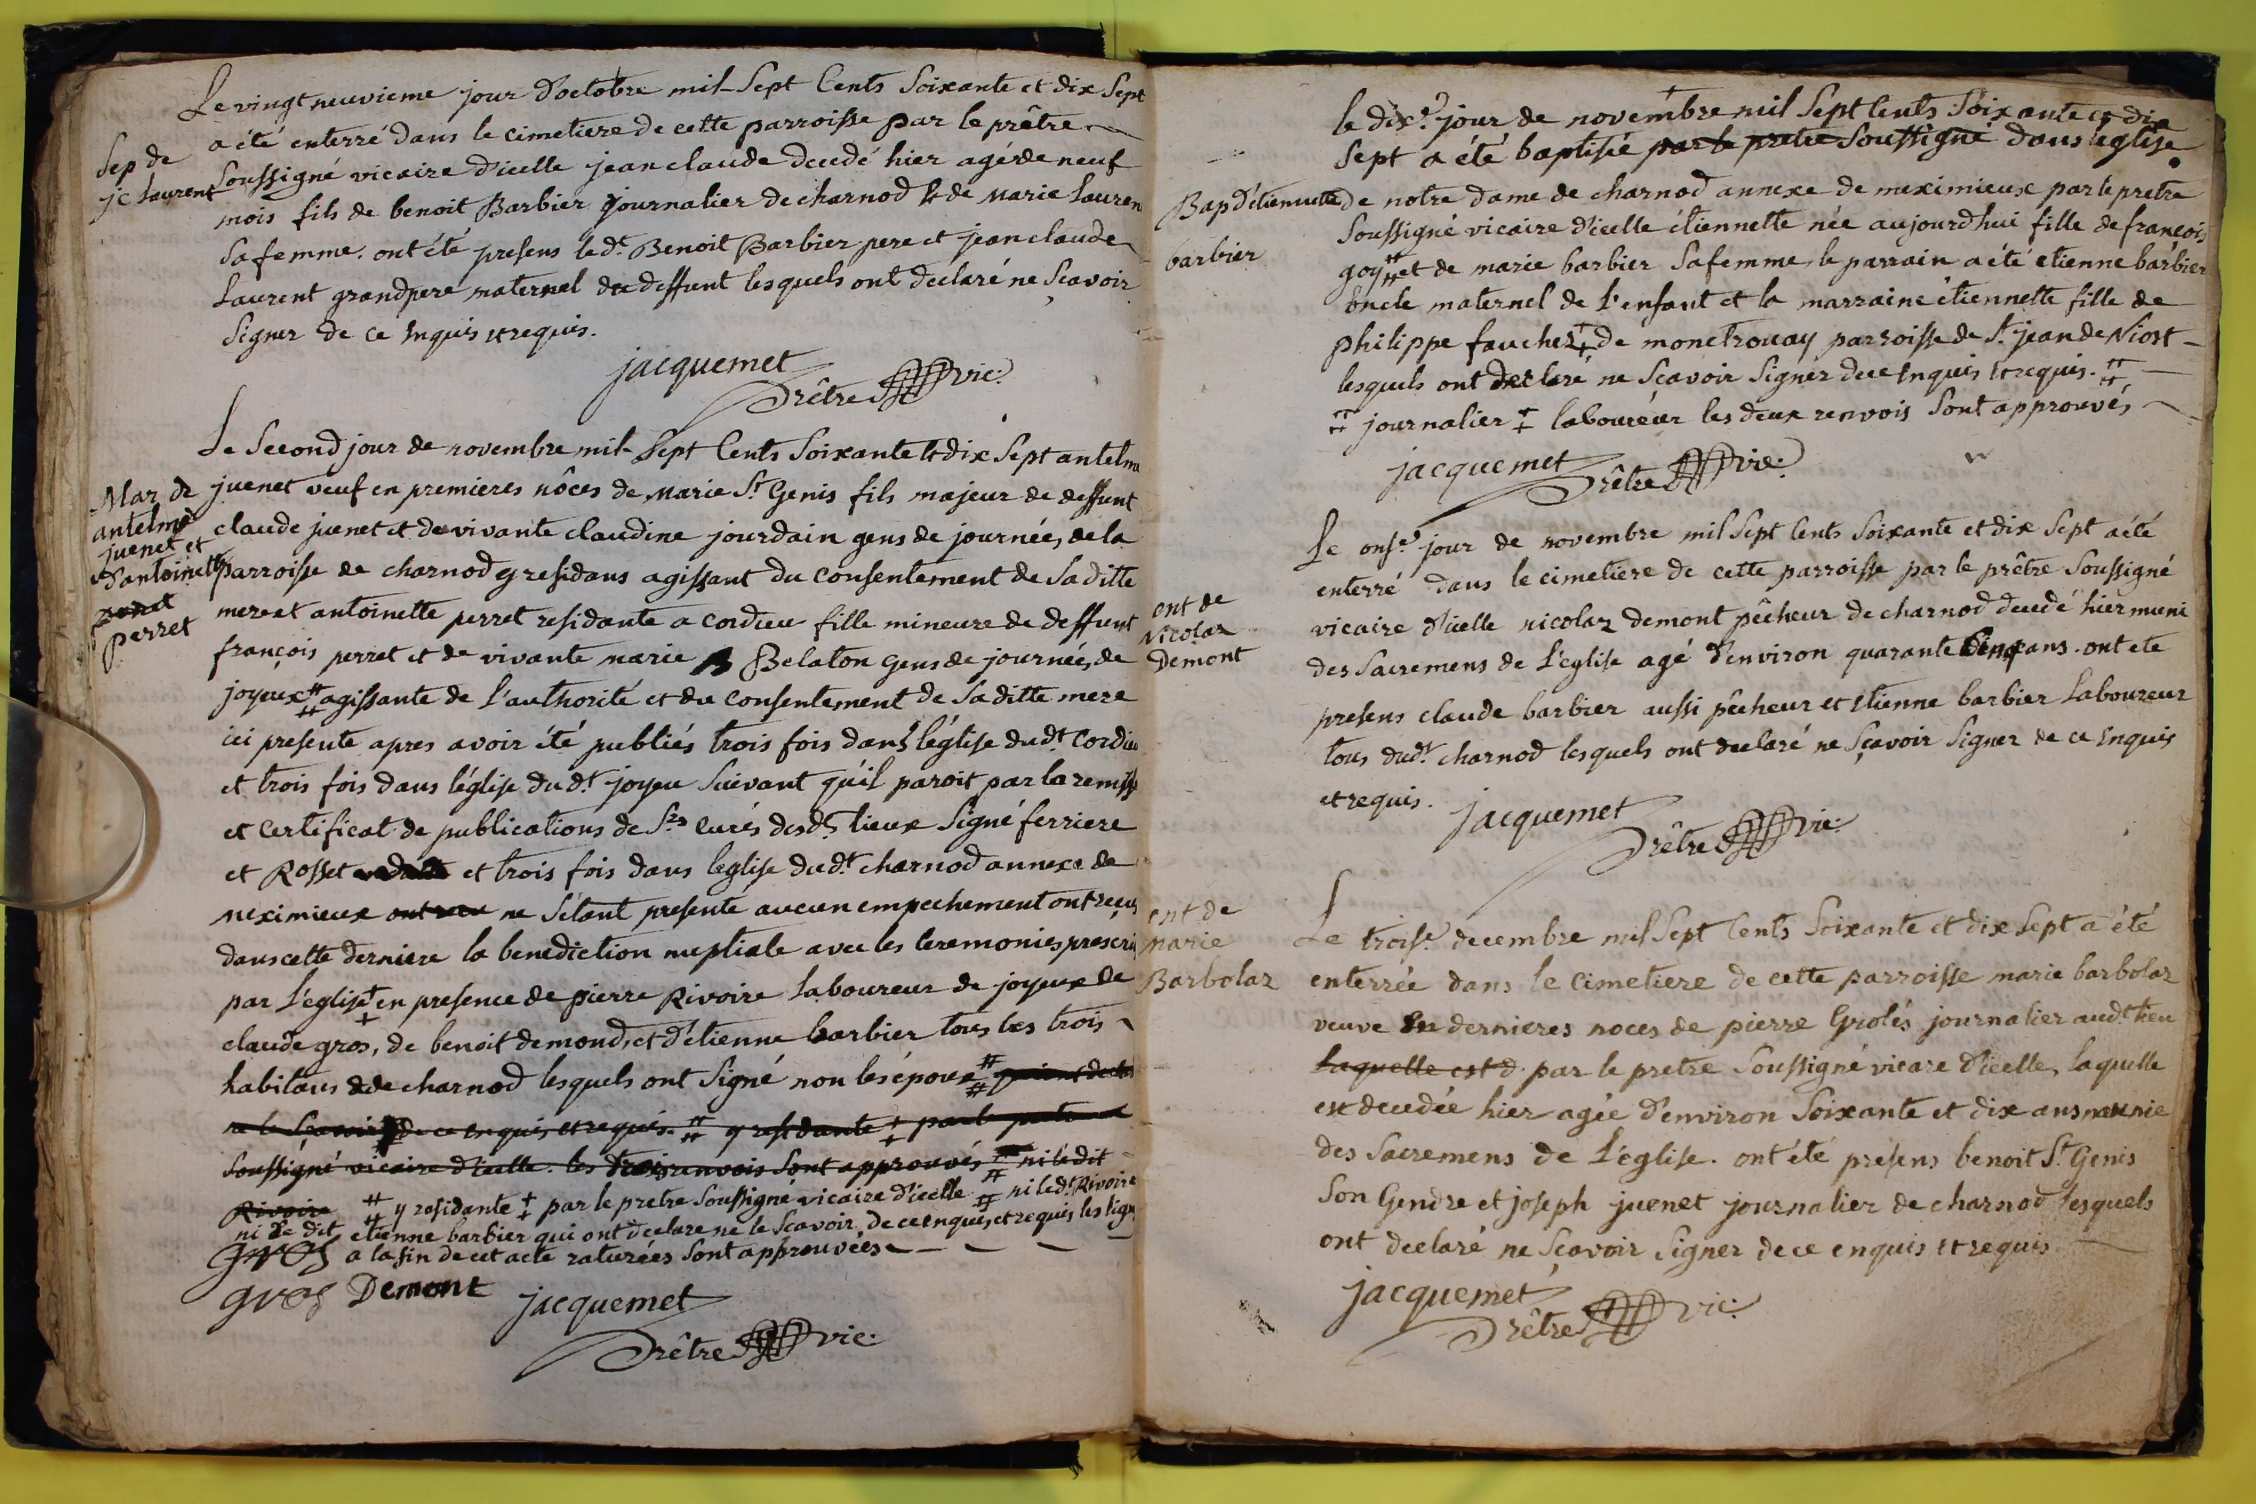 Le vingt neuvieme jour d'octobre mil Sept Cents Soixante et dix Sept
a été enterré dans le cimetiere de cette parroisse par le prêtre
Sep de
jc Laurent
Soussigné vicaire d'icelle jean claude decedé hier agé de neuf
mois fils de benoit Barbier journalier de charnod & de Marie Lauren
Sa femme. ont été presens le d.t Benoit Barbier pere et jean claude
Laurent grandpere maternel du deffunt lesquels ont declaré ne Sçavoir
Signer de ce Enquis et requis.
jacquemet
Prêtre vic:
Le Second jour de novembre mil Sept Cents Soixante et dix Sept antelme
Mar de
antelme
juenet et
d'antoinette
perret
perret
juenet veuf en premieres nôces de Marie S.t Genis fils majeur de deffunt
claude juenet et de vivante claudine jourdain gens de journée, de la
parroisse de charnod y residans agissant du consentement de Sa ditte
mere et antoinette perret residante a cordieu fille mineure de deffunt
françois perret et de vivante marie B Belaton gens de journée, de
joyeux ⌗ agissante de l'authorité et du consentement de Sa ditte mere
ici presente apres avoir été publiés trois fois dans l'église dud.t Cordieu
et trois fois dans l'église du d.t joyeu Suivant qu'il paroit par la remise
et Certificat de publications de S.rs curés desd.s lieux Signé ferriere
et Rosset et trois fois dans l'eglise dud.t charnod annexe de
meximieux ont reçu ne S'étant presenté aucun empechement ont reçus
dans cette derniere la benediction nuptiale avec les Ceremonies prescri
par L'eglise ‡ en presence de pierre Rivoire Laboureur de joyeux de
claude gros, de benoit demond, et d'étienne barbier tous les trois
habitans de charnod lesquels ont Signé non les époux ⌗
ne le Sçavoir de ce enquis et requis. ⌗ y residante ‡ par le prêtre
Soussigné vicaire d'icelle. les trois renvois Sont approuvés ni le dit
Rivoire ⌗ y residante ‡ par le pretre Soussigné vicaire d'icelle ⌗ ni le d.t Rivoire
ni le dit etienne barbier qui ont declare ne le Scavoir de ce enquis et requis les lign
gros a la fin de cet acte raturées Sont approuvées
gros Demont jacquemet
Prêtre vic:
le dix.e jour de novembre mil Sept Cents Soixante et dix
Sept a été baptisée par le pretre Soussigné dans l'eglise
Bap d'étiennette
barbier
de notre dame de charnod annexe de meximieux par le pretre
Soussigné vicaire d'icelle étiennette née aujourdhui fille de françois
goy ⌗ et de marie barbier Sa femme, le parrain a été etienne barbier
oncle maternel de l'enfant et la marraine étiennette fille de
philippe faucher ‡ de monetrouay parroisse de S.t jean de Niost
lesquels ont declaré ne Sçavoir Signer de ce Enquis et requis. ⌗
⌗ journalier ‡ laboureur les deux renvois Sont approuvés
jacquemet
Prêtre vic:
Le onse.e jour de novembre mil Sept Cents Soixante et dix Sept a été
enterré dans le cimetiere de cette parroisse par le prêtre Soussigné
ent de
Nicolaz
Demont
vicaire d'icelle nicolaz demont pêcheur de charnod decedé hier muni
des Sacremens de L'église agé d'environ quarante Cinq ans. ont ete
presens claude barbier aussi pêcheur et Etienne barbier Laboureur
tous dud.t charnod lesquels ont declaré ne Sçavoir Signer de ce Enquis
et requis.
jacquemet
Prêtre vic:
Le trois.e decembre mil Sept Cents Soixante et dix Sept a été
ent de
Marie
Barbolaz
enterrée dans le Cimetiere de cette parroisse marie barbolaz
veuve En dernieres noces de pierre Grolés journalier aud.t lieu
laquelle est d par le pretre Soussigné vicare d'icelle, laquelle
est decedée hier agée d'environ Soixante et dix ans munie
des Sacremens de L'église. ont été presens benoit S.t Genis
Son Gendre et joseph juenet journalier de charnod lesquels
ont declaré ne Sçavoir Signer de ce enquis et requis
jacquemet
Prêtre vic: